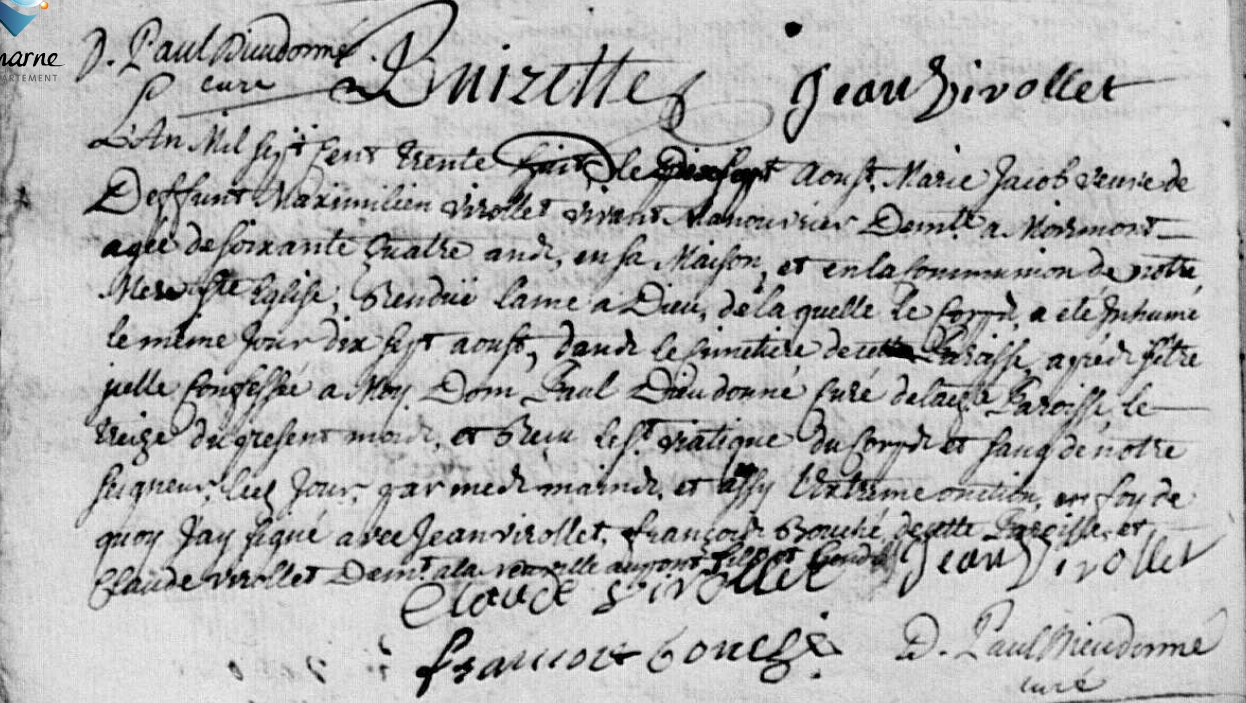 marne
DÉPARTEMENT
D. Paul Dieudonné
curé
Buizette
Jean Virollet
L'An Mil sept cent trente huit le dix sept aoust, Marie Jacob veuve de
Deffunt Maximilien virollet vivant Manouvrier Demt. a Moiremont
agée de soixante quatre ans, en sa Maison, et en la Communion de notre
Mere Ste Eglise, Rendüe lame a Dieu, de la quelle le corps, a été Inhumé
le même Jour dix sept aoust, dans le cimetiere de cette Paroisse, aprés sêtre
icelle confessée a Moy Dom Paul Dieudonné Curé de laditte Paroisse le
treize du present mois, et Reçu le St. viatique du Corps et sang de notre
seigneur, led. Jour, par mes mains, et assy l'Extrême onction, en foy de
quoy Jay signé avec Jean virollet, françois Bouché de cette Paroisse, et
Claude virollet Demt. a la neuville au pont
Claude Virollet
Jean Virollet
françois bouché
D. Paul Dieudonné
curé